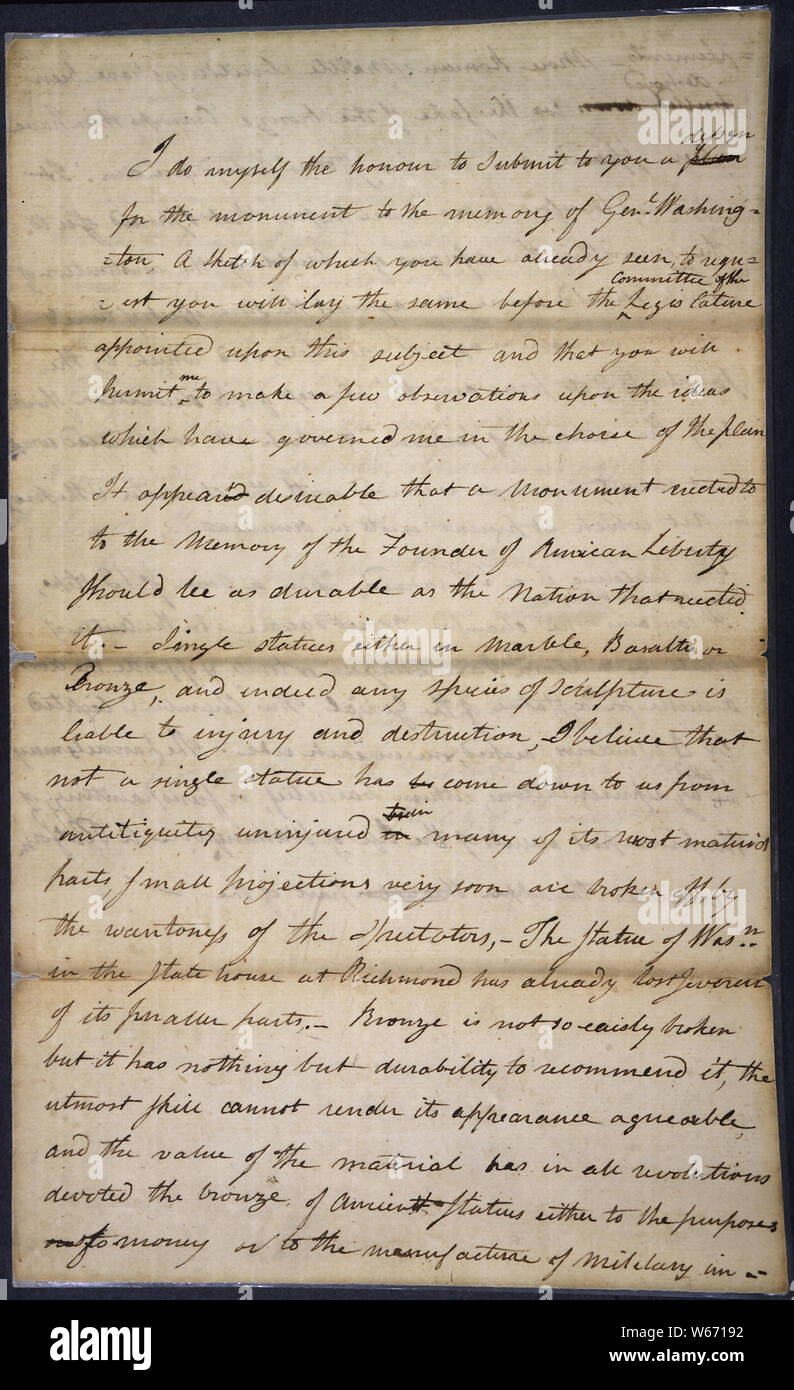 I do myself the honour to submit to you a plan design
for the monument to the memory of Genl. Washing=
=ton, A sketch of which you have already seen, to requ=
=est you will lay the same before the committee of the Legislature
appointed upon this subject and that you will
permit me to make a few observations upon the ideas
which have governed me in the choice of the plan
It appear'd desireable that a Monument erected to
to the Memory of the Founder of American Liberty
should be as durable as the Nation that erected
it. – Single statues either in Marble, Basalt or
Bronze, and indeed any species of sculpture is
liable to injury and destruction, – I believe that
not a single statue has come down to us from
antitiquity uninjured in many of its most material
parts small projections very soon are broken off, by
the wantoness of the Spectators, – The statue of Wasn.
in the state house at Richmond has already lost several
of its smaller parts. – Bronze is not so easily broken
but it has nothing but durability to recommend it, the
utmost skill cannot render its appearance agreeable,
and the value of the material has in all revolutions
devoted the bronze of Ancient Statues either to the purposes
of money or to the manufacture of military im-
alamy
alamy stock photo
W67192
www.alamy.com